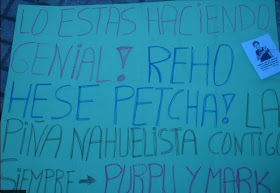 LO ESTAS HACIENDO
GENIAL! REHO
HESE PETCHA! LA
PIÑA NAHUELISTA CONTIGO
SIEMPRE → PURPI Y MARK